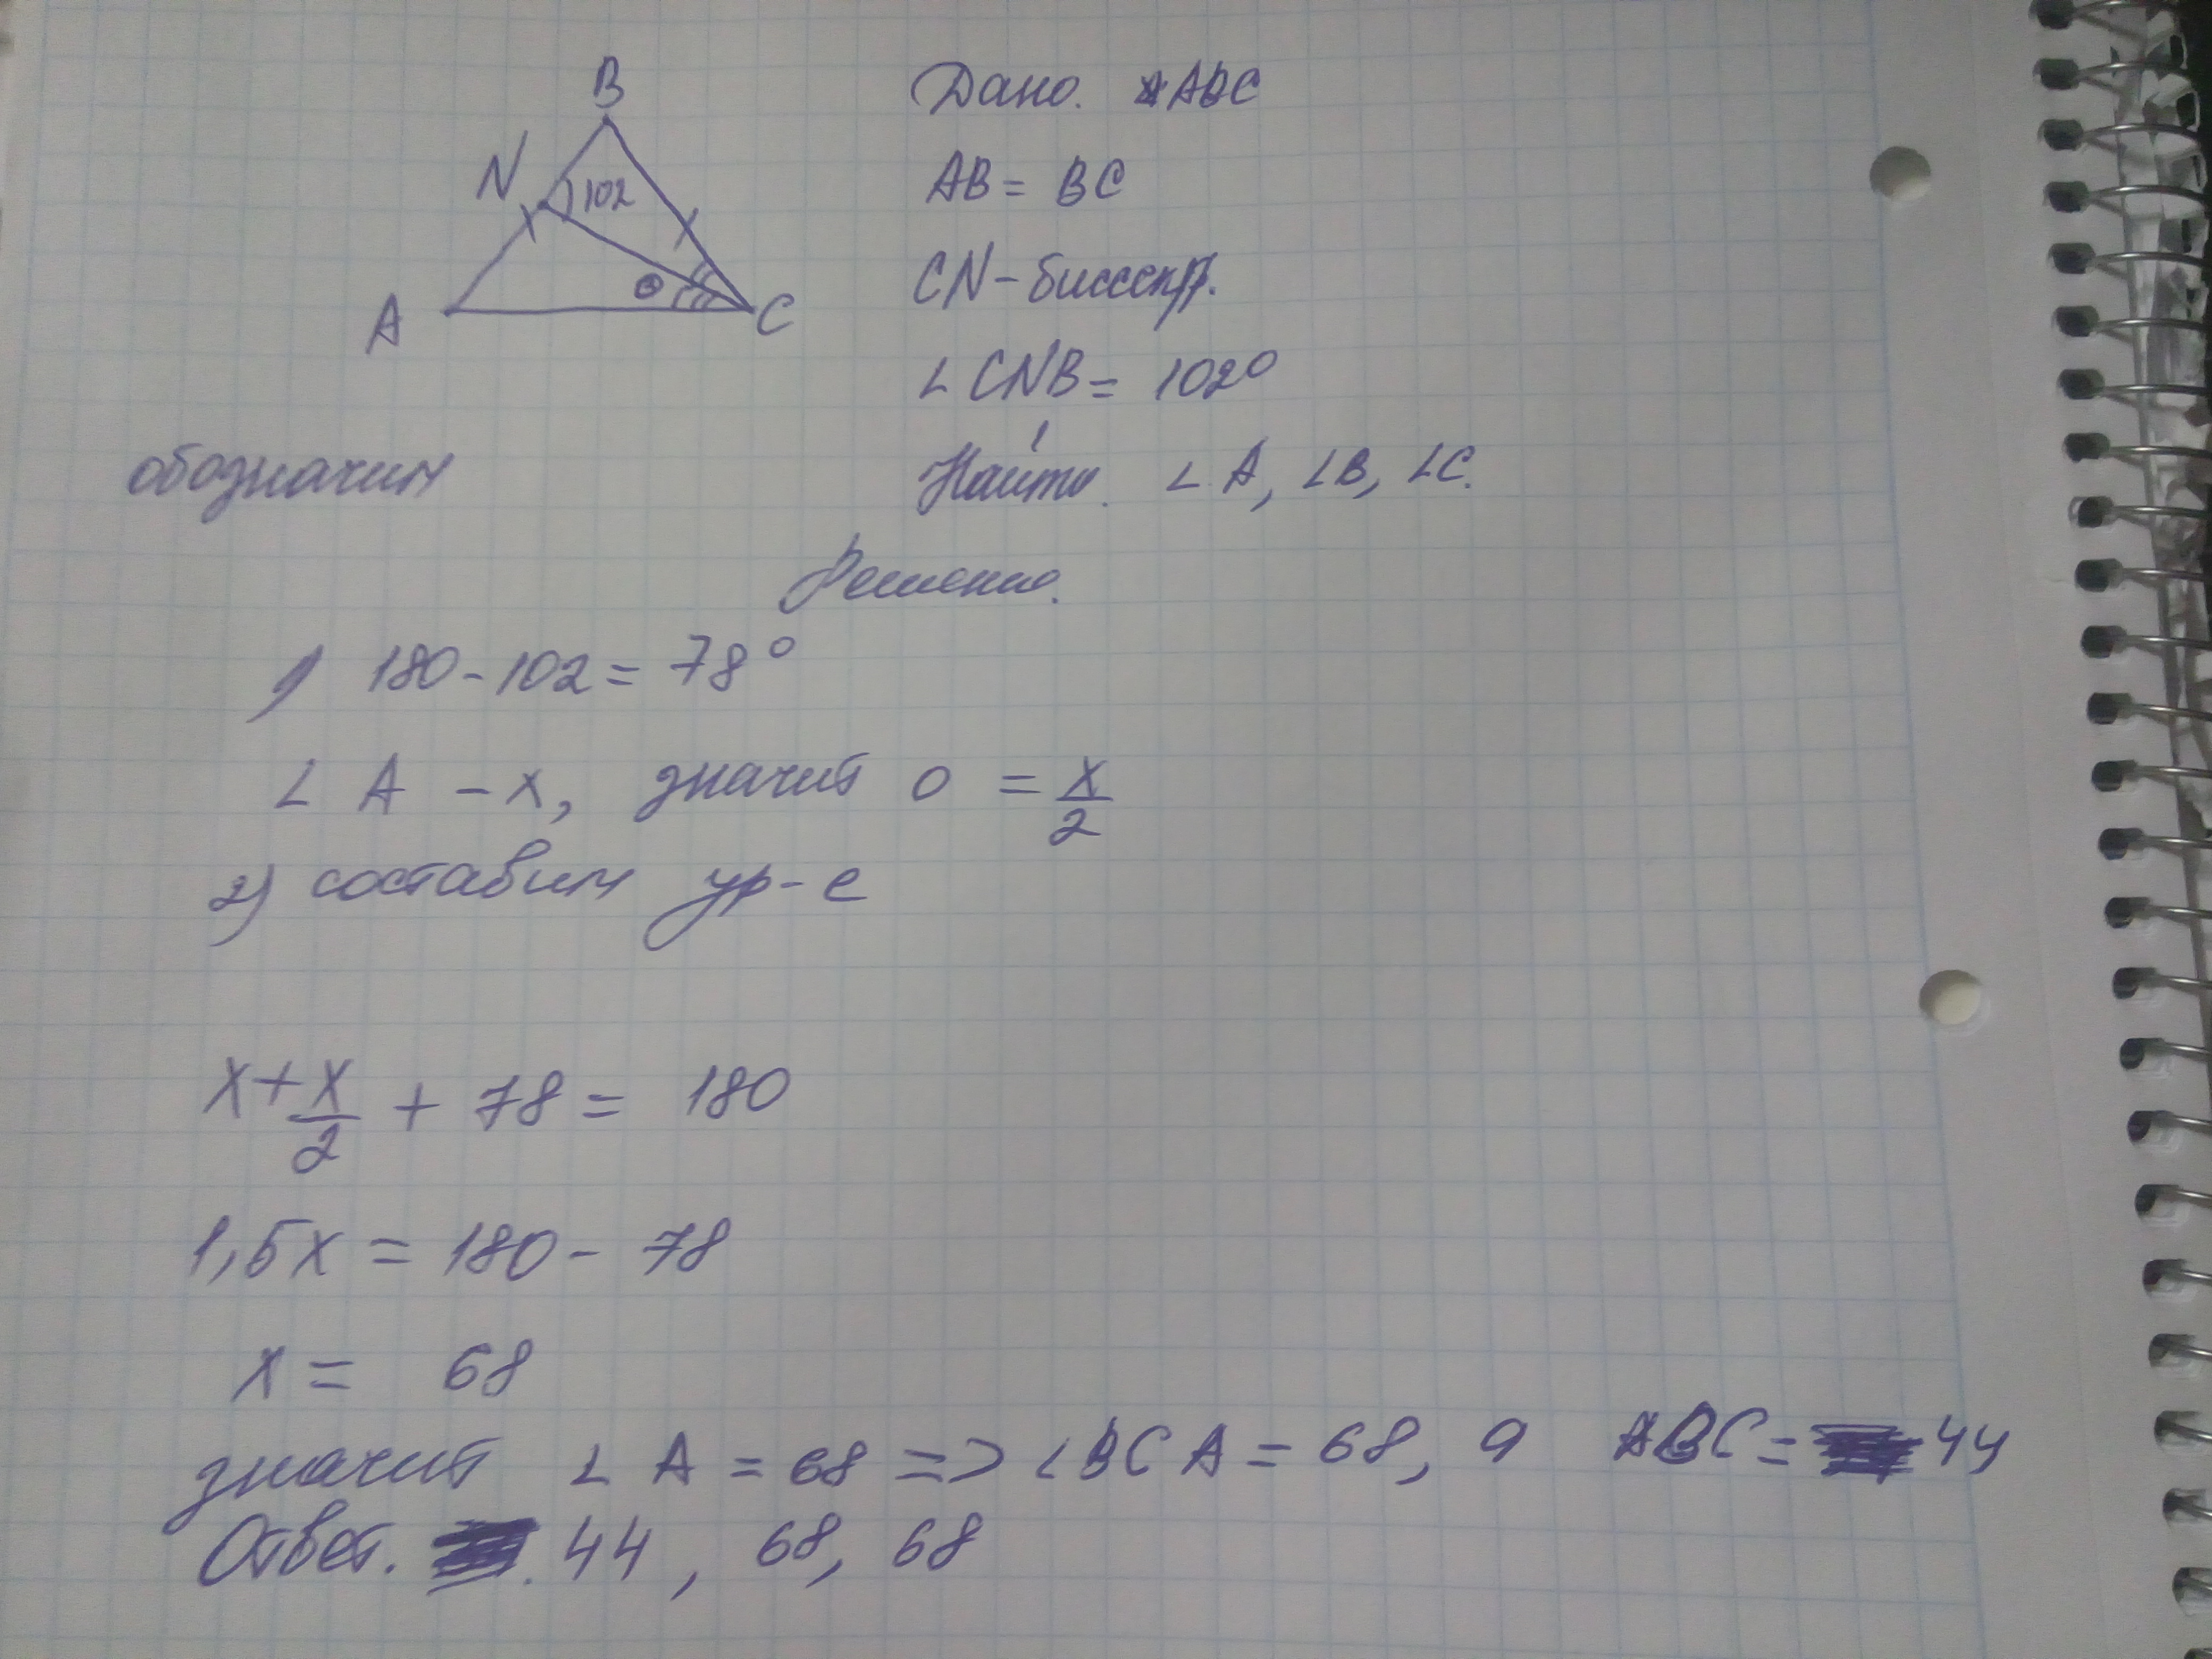 B
N
102
A
C
Дано. ABC
AB = BC
CN - биссектр.
∠ CNB = 102°
обозначим
Найти. ∠ A, ∠B, ∠C.
Решение.
1) 180 - 102 = 78°
∠ A - x, значит o = x/2
2) составим ур-е
x + x/2 + 78 = 180
1,5x = 180 - 78
x = 68
значит ∠ A = 68 => ∠BCA = 68, а ABC = 44
Ответ. 44, 68, 68